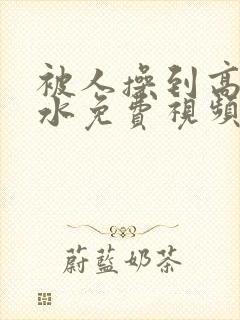 被人操到高
水免費視頻
蔚藍奶茶